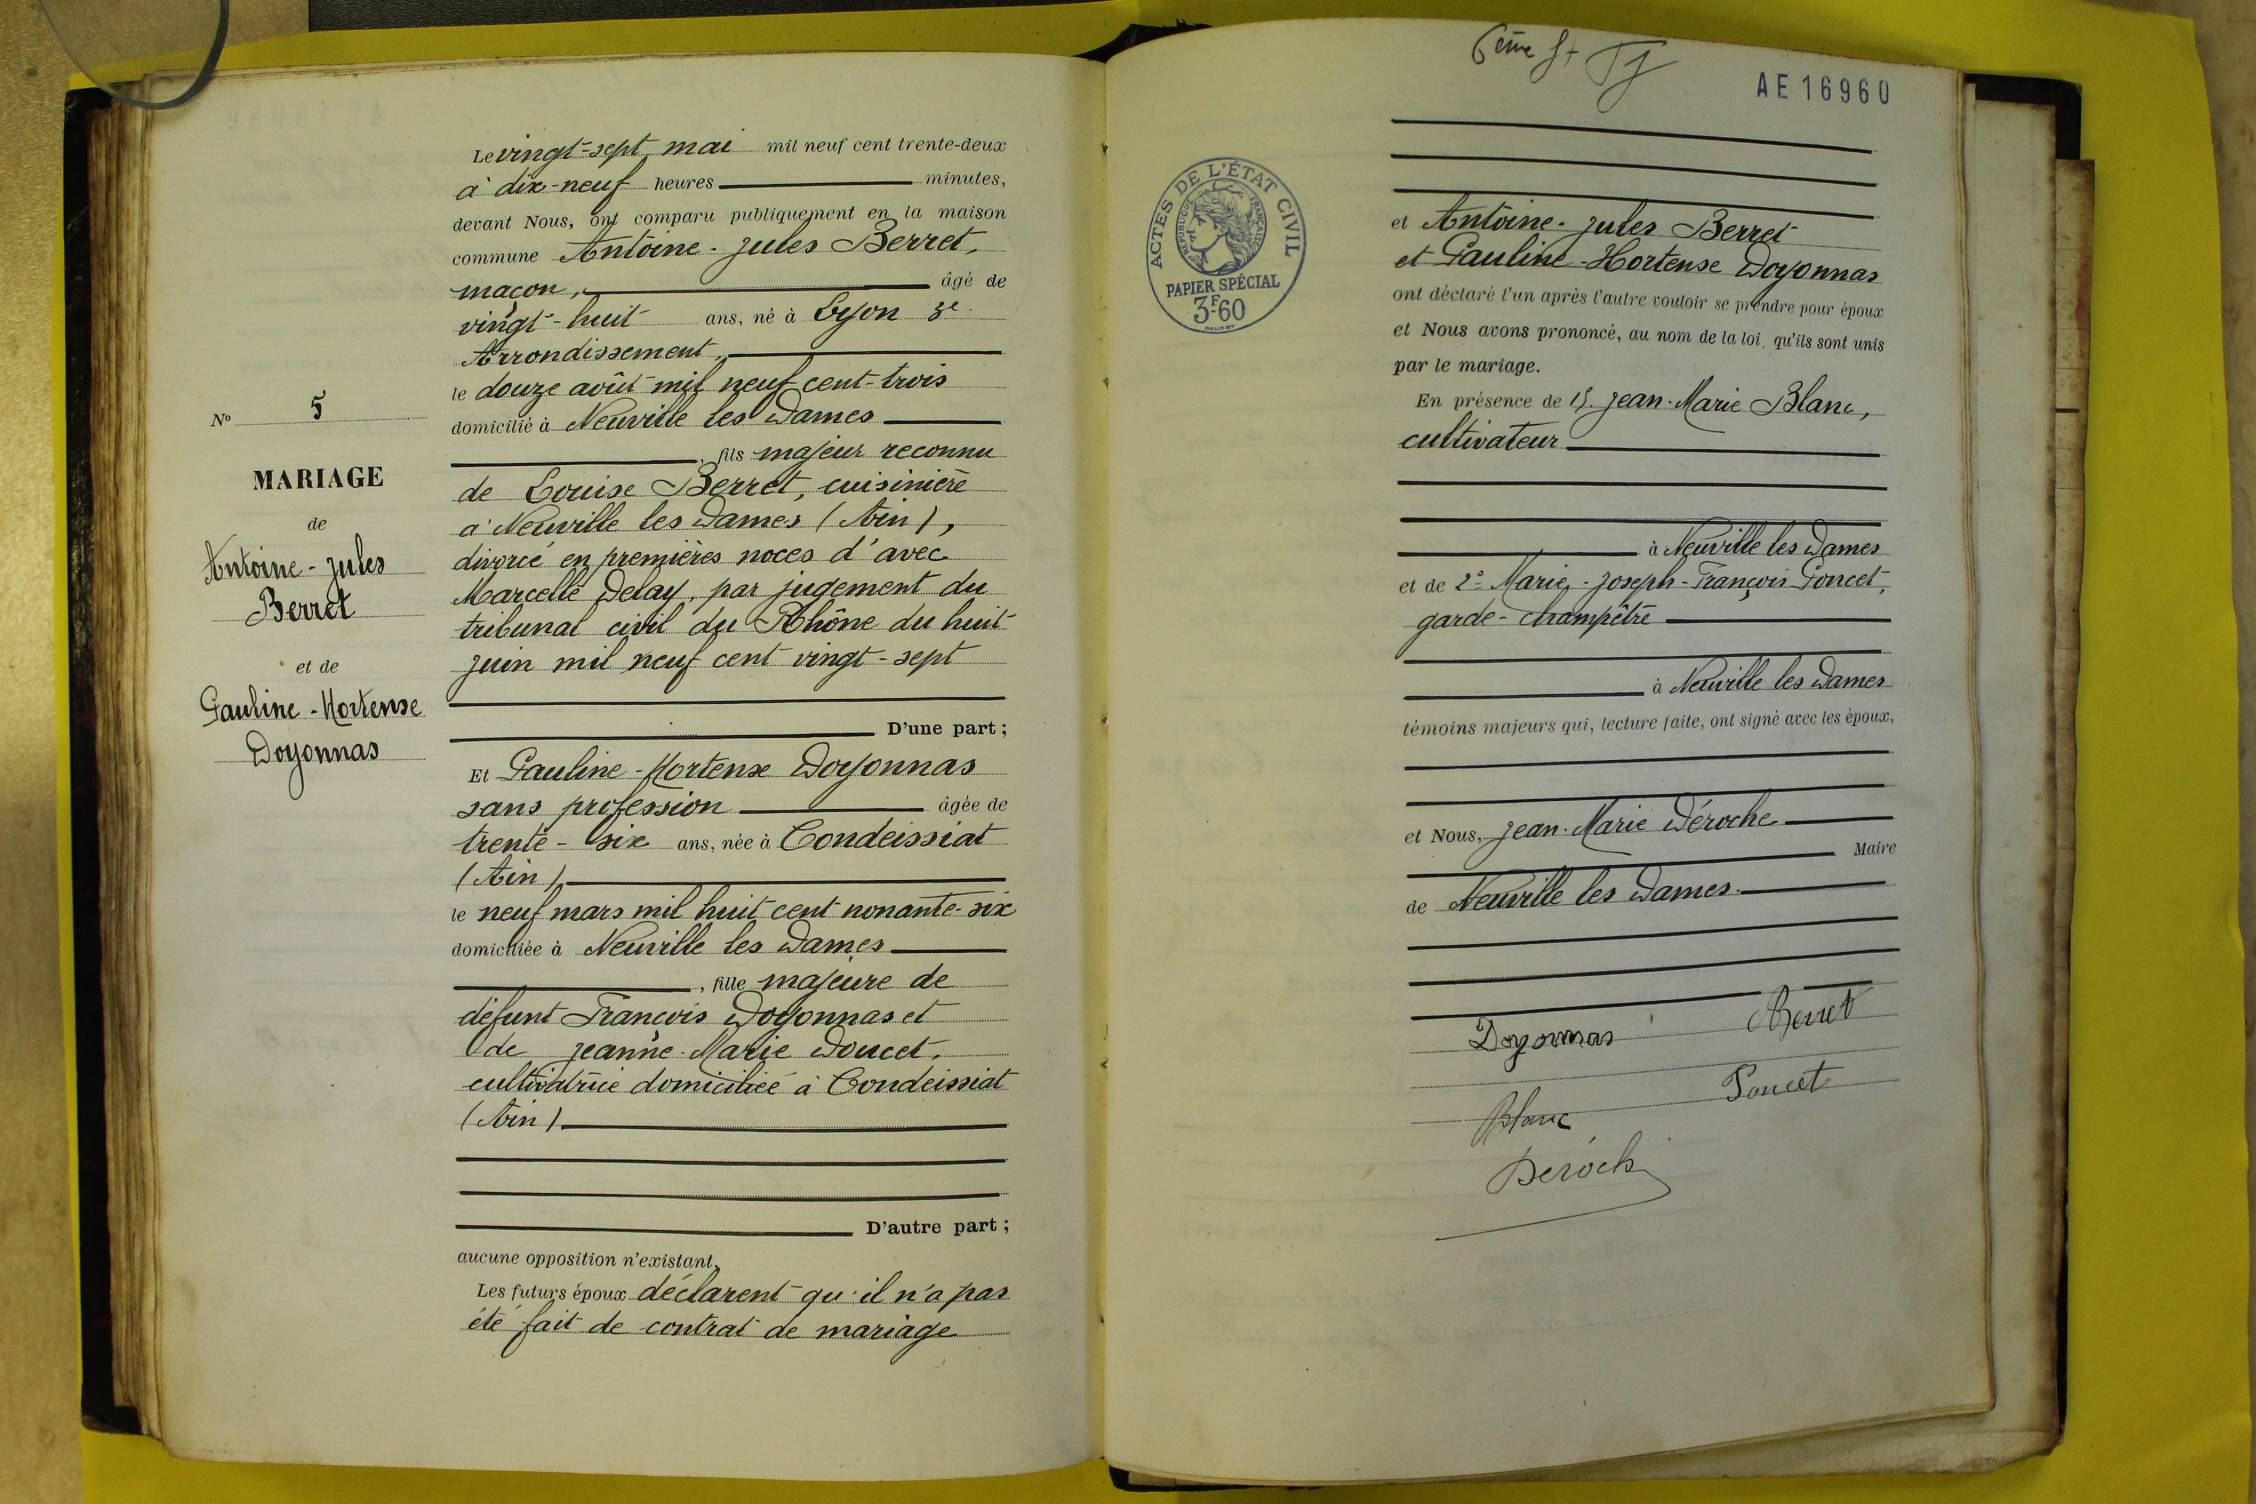 N° 5
MARIAGE
de
Antoine-Jules
Berret
et de
Pauline-Hortense
Doyonnas
Le vingt-sept mai mil neuf cent trente-deux
à dix-neuf heures minutes,
devant Nous, ont comparu publiquement en la maison
commune Antoine-Jules Berret,
maçon, âgé de
vingt-huit ans, né à Lyon 3e
Arrondissement,
le douze août mil neuf cent-trois
domicilié à Neuville les Dames
, fils majeur reconnu
de Louise Berret, cuisinière
à Neuville les Dames (Ain),
divorcé en premières noces d'avec
Marcelle Delay, par jugement du
tribunal civil du Rhône du huit
juin mil neuf cent vingt-sept
D'une part ;
Et Pauline-Hortense Doyonnas
sans profession âgée de
trente-six ans, née à Condeissiat
(Ain)
le neuf mars mil huit cent nonante-six
domiciliée à Neuville les Dames
, fille majeure de
défunt François Doyonnas et
de Jeanne-Marie Doucet,
cultivatrice domiciliée à Condeissiat
(Ain)
D'autre part ;
aucune opposition n'existant.
Les futurs époux déclarent qu'il n'a pas
été fait de contrat de mariage
6ème
AE 16960
ACTES DE L'ÉTAT CIVIL
RÉPUBLIQUE FRANÇAISE
PAPIER SPÉCIAL
3F60
et Antoine-Jules Berret
et Pauline-Hortense Doyonnas
ont déclaré l'un après l'autre vouloir se prendre pour époux
et Nous avons prononcé, au nom de la loi, qu'ils sont unis
par le mariage.
En présence de 1º Jean-Marie Blanc,
cultivateur
à Neuville les Dames
et de 2º Marie-Joseph-François Poncet,
garde-champêtre
à Neuville les Dames
témoins majeurs qui, lecture faite, ont signé avec les époux,
et Nous, Jean-Marie Déroche
Maire
de Neuville les Dames.
Doyonnas Berret
Blanc Poncet
Deroche